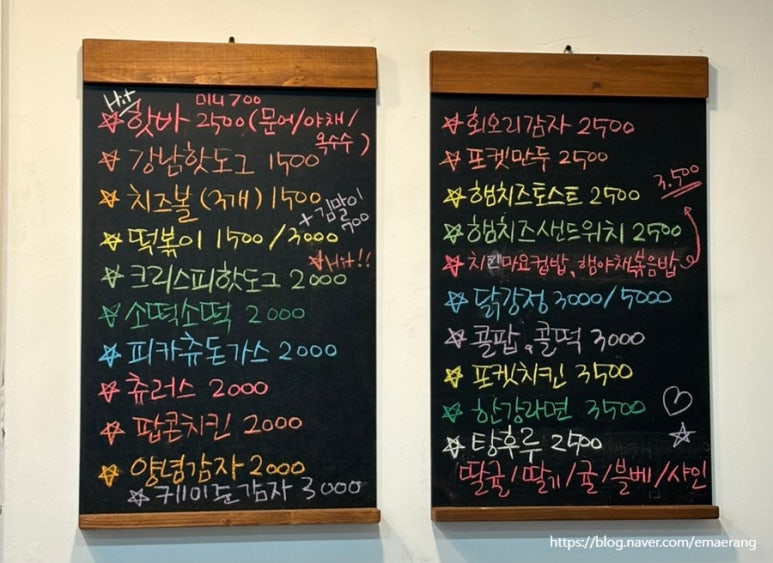 Hit 미니 700
☆핫바 2500(문어/야채/옥수수)
☆강남핫도그 1500
☆치즈볼(3개) 1500
+김말이 700
☆떡볶이 1500/3000
☆Hit!!
☆크리스피핫도그 2000
☆소떡소떡 2000
☆피카츄돈가스 2000
☆츄러스 2000
☆팝콘치킨 2000
☆양념감자 2000
☆케이준감자 3000
☆회오리감자 2500
☆포켓만두 2500
3.500
☆햄치즈토스트 2500
☆햄치즈샌드위치 2500
☆치킨마요컵밥, 햄야채볶음밥
☆닭강정 3000/5000
☆콜팝, 콜떡 3000
☆포켓치킨 3500
☆한강라면 3500
☆탕후루 2500
딸귤/딸기/귤/블베/샤인
https://blog.naver.com/emaerang